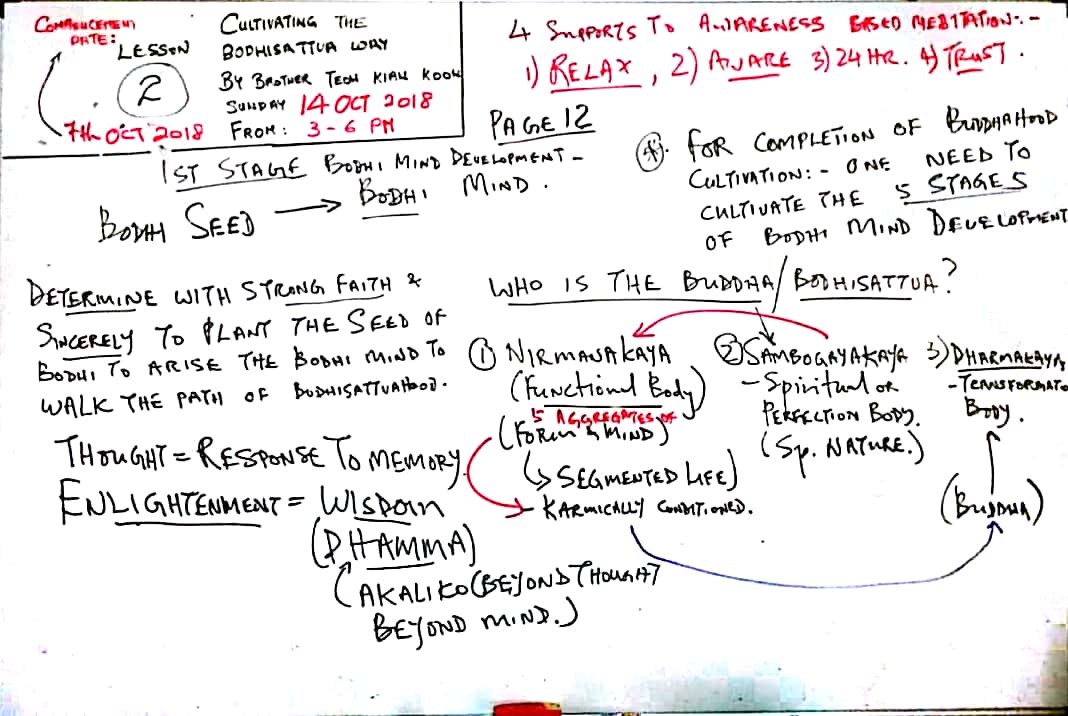 COMMENCEMENT
DATE:
LESSON
2
7th OCT 2018
CULTIVATING THE
BODHISATTVA WAY
BY BROTHER TEOH KIAN KOON
SUNDAY 14 OCT 2018
FROM: 3-6 PM
4 SUPPORTS TO AWARENESS BASED MEDITATION:-
1) RELAX, 2) AWARE 3) 24 HR. 4) TRUST.
PAGE 12
1ST STAGE BODHI MIND DEVELOPMENT-
BODHI SEED → BODHI MIND.
FOR COMPLETION OF BUDDHAHOOD
CULTIVATION:- ONE NEED TO
CULTIVATE THE 5 STAGES
OF BODHI MIND DEVELOPMENT
DETERMINE WITH STRONG FAITH &
SINCERELY TO PLANT THE SEED OF
BODHI TO ARISE THE BODHI MIND TO
WALK THE PATH OF BODHISATTVAHOOD.
THOUGHT = RESPONSE TO MEMORY
ENLIGHTENMENT = WISDOM
(DHAMMA)
(AKALIKO (BEYOND THOUGHT
BEYOND MIND.)
WHO IS THE BUDDHA/BODHISATTVA?
① NIRMANAKAYA
(Functional Body)
5 AGGREGATES OF
(FORM & MIND)
(↳ SEGMENTED LIFE)
- KARMICALLY CONDITIONED.
② SAMBOGAYAKAYA
- Spiritual or
PERFECTION BODY.
(Sp. NATURE.)
3) DHARMAKAYA
- TRANSFORMATO
BODY.
(BUDDHA)